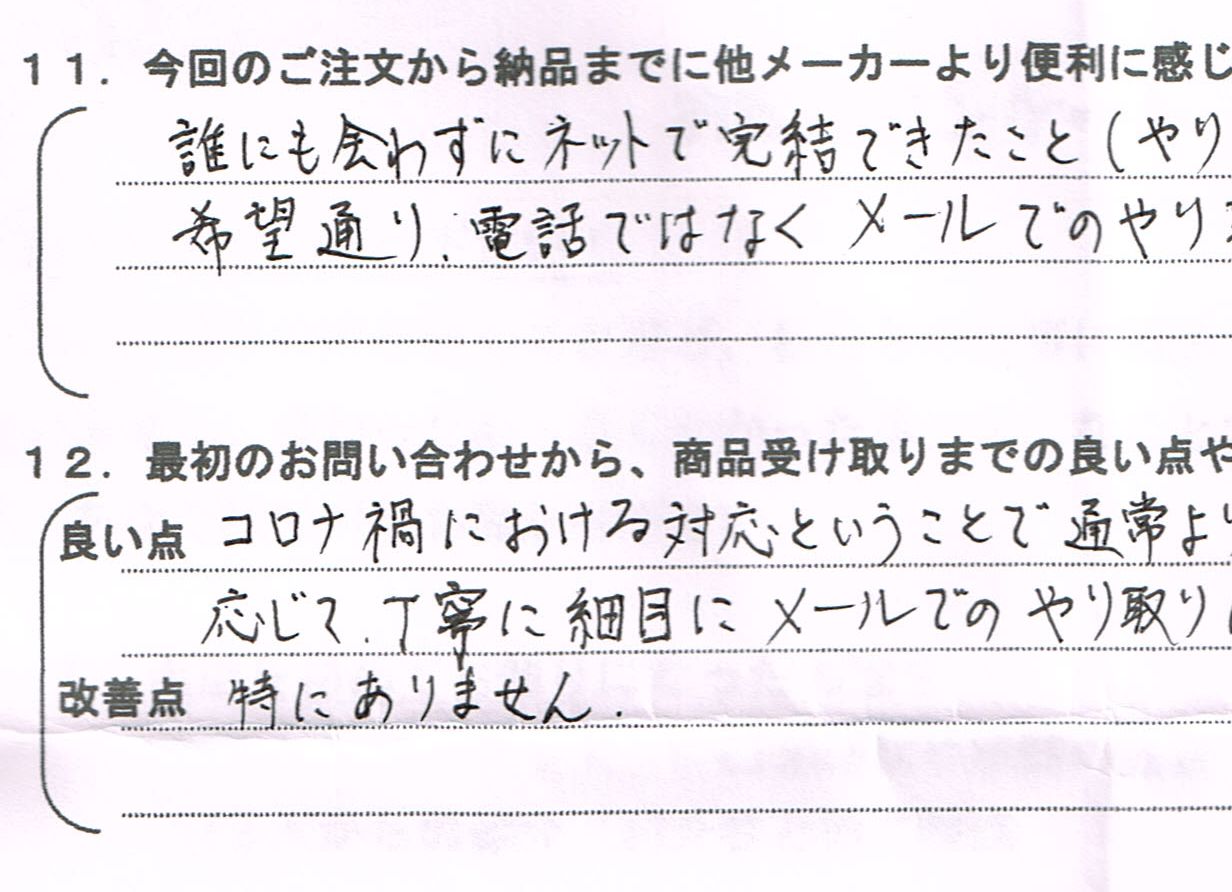 11．今回のご注文から納品までに他メーカーより便利に感じ
誰にも会わずにネットで完結できたこと（やり
希望通り、電話ではなくメールでのやり
12．最初のお問い合わせから、商品受け取りまでの良い点や
良い点 コロナ禍における対応ということで通常よ
応じて、丁寧に細目にメールでのやり取り
改善点 特にありません．